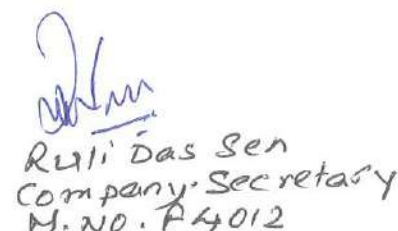 Ruli Das Sen
Company Secretary
M. No. F4012